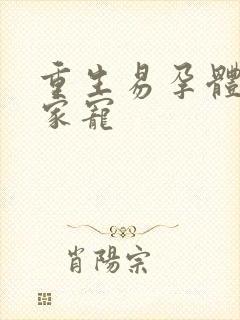 重生易孕體
家寵
肖陽宗